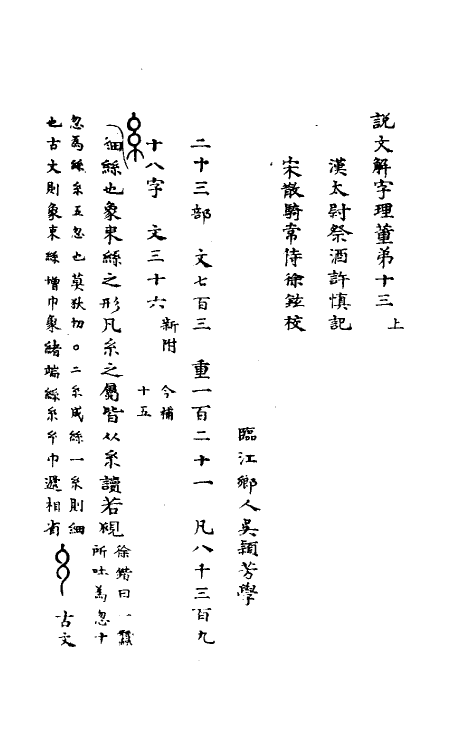 説文解字理董弟十三上
漢太尉祭酒許慎記
宋散騎常侍徐鉉校
臨江鄉人吳穎芳學
二十三部 文七百三 重一百二十一 凡八千三百九
十八字 文三十六 新附 今補
十五
細絲也象束絲之形凡糸之屬皆从糸讀若覛
徐鍇曰一蠶
所吐為忽十
忽為絲糸五忽也莫狄切。二糸成絲一糸則細
也古文則象束絲增巾象緒端絲糸巾遞相省
古文